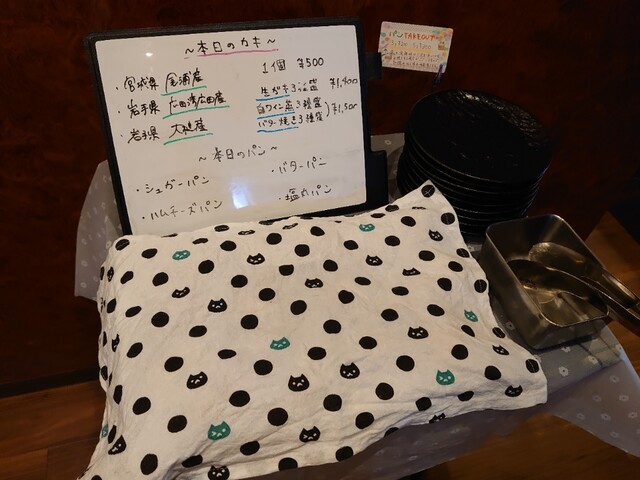 ～本日のカキ～
・宮城県 尾浦産 1個 ¥500
・岩手県 広田湾広田産 生ガキ3種盛 ¥1,400
白ワイン蒸3種盛
・岩手県 大槌産 バター焼き3種盛 ¥1,500
～本日のパン～
・シュガーパン ・バターパン
・ハムチーズパン ・塩パン
パン TAKEOUT